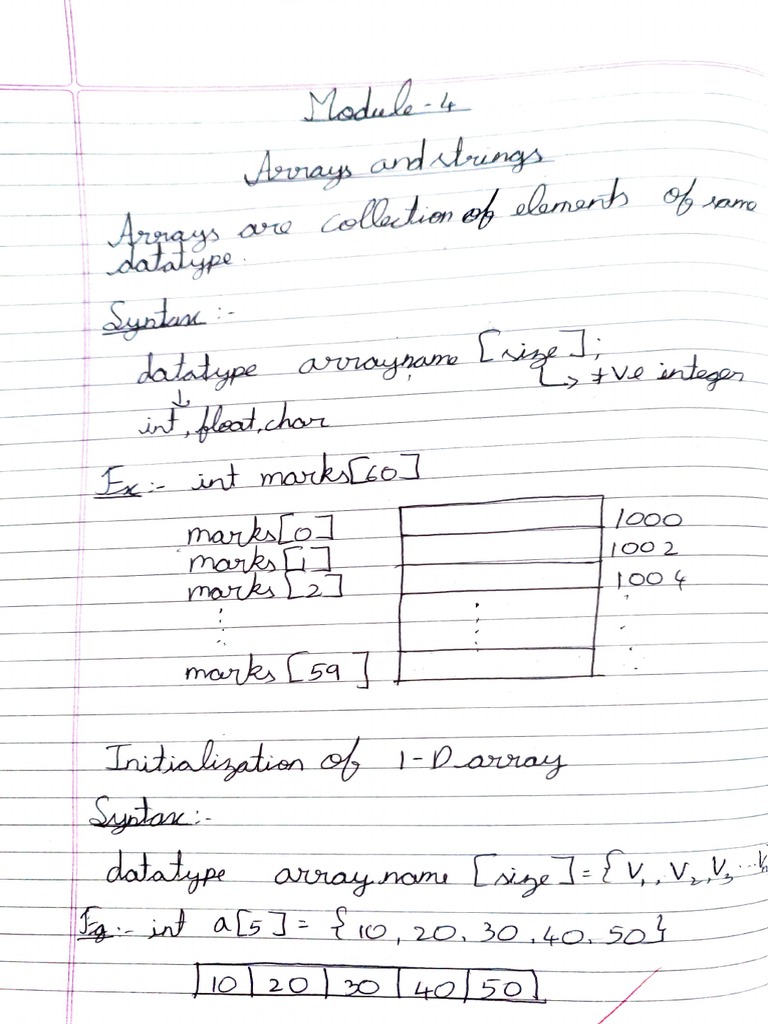 Module-4
Arrays and strings
Arrays are collection of elements of same
datatype.
Syntax:-
datatype arrayname [size];
↳ +ve integer
↓
int, float, char
Ex:- int marks[60]
marks[0] 1000
marks[1] 1002
marks[2] 1004
marks [59]
Initialization of 1-D array
Syntax:-
datatype array name [size] = { V₁, V₂, V₃ ...
Eg:- int a[5] = {10, 20, 30, 40, 50}
10 20 30 40 50